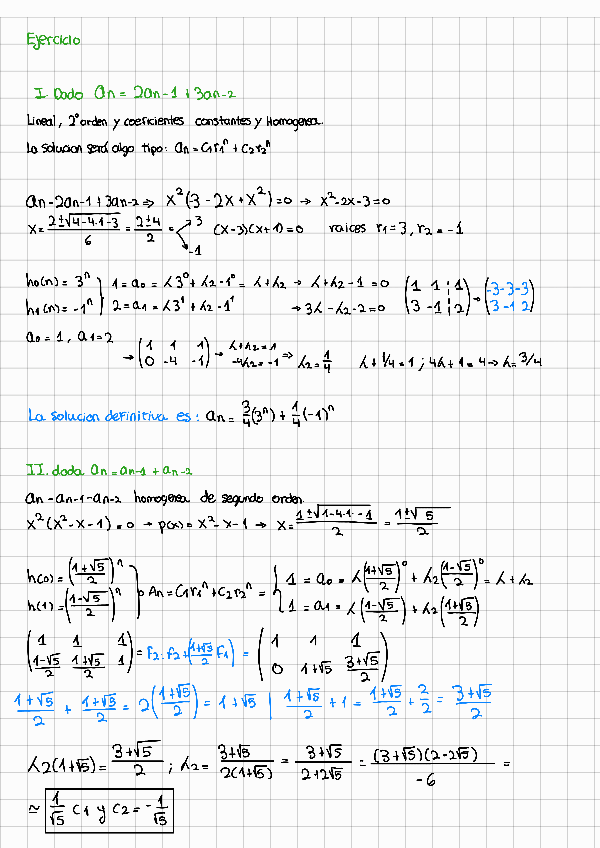 Ejercicio
I. Dado an = 2an-1 + 3an-2
Lineal, 2º orden y coeficientes constantes y Homogenea.
La solucion será algo tipo: an = C1r1^n + C2r2^n
an-2an-1+3an-2 ⇒ x²(3-2x+x²)=0 → x²-2x-3=0
x = (2±√(4-4·1·-3))/6 = (2±4)/2 = < 3, -1 (x-3)(x+1)=0 raices r1=3, r2=-1
h0(n) = 3^n } 1 = a0 = λ3^0 + λ2-1^0 = λ+λ2 → λ+λ2-1=0 (1 1 ¦ 1) → (-3-3-3)
h1(n) = -1^n } 2 = a1 = λ3^1 + λ2-1^1 → 3λ-λ2-2=0 (3 -1 ¦ 2) (3 -1 2)
a0=1, a1=2
→ (1 1 1 / 0 -4 -1) → λ+λ2=1 / -4λ2=-1 ⇒ λ2=1/4 λ+1/4=1; 4λ+1=4 → λ=3/4
La solucion definitiva es: an = 3/4(3^n) + 1/4(-1)^n
II. dada an = an-1 + an-2
an-an-1-an-2 homogenea de segundo orden.
x²(x²-x-1)=0 → p(x)=x²-x-1 → x = (1±√(1-4·1·-1))/2 = (1±√5)/2
h(0) = ((1+√5)/2)^n } An = C1r1^n + C2r2^n = { 1 = a0 = λ((1+√5)/2)^0 + λ2((1-√5)/2)^0 = λ+λ2
h(1) = ((1-√5)/2)^n } { 1 = a1 = λ((1-√5)/2) + λ2((1+√5)/2)
(1 1 1 / (1-√5)/2 (1+√5)/2 1) = F2: F2+((1+√5)/2 F1) = (1 1 1 / 0 1+√5 (3+√5)/2)
(1+√5)/2 + (1+√5)/2 = 2((1+√5)/2) = 1+√5 | (1+√5)/2 + 1 = (1+√5)/2 + 2/2 = (3+√5)/2
λ2(1+√5) = (3+√5)/2 ; λ2 = (3+√5)/(2(1+√5)) = (3+√5)/(2+2√5) = ((3+√5)(2-2√5))/-6 =
≃ 1/√5 C1 y C2 = -1/√5